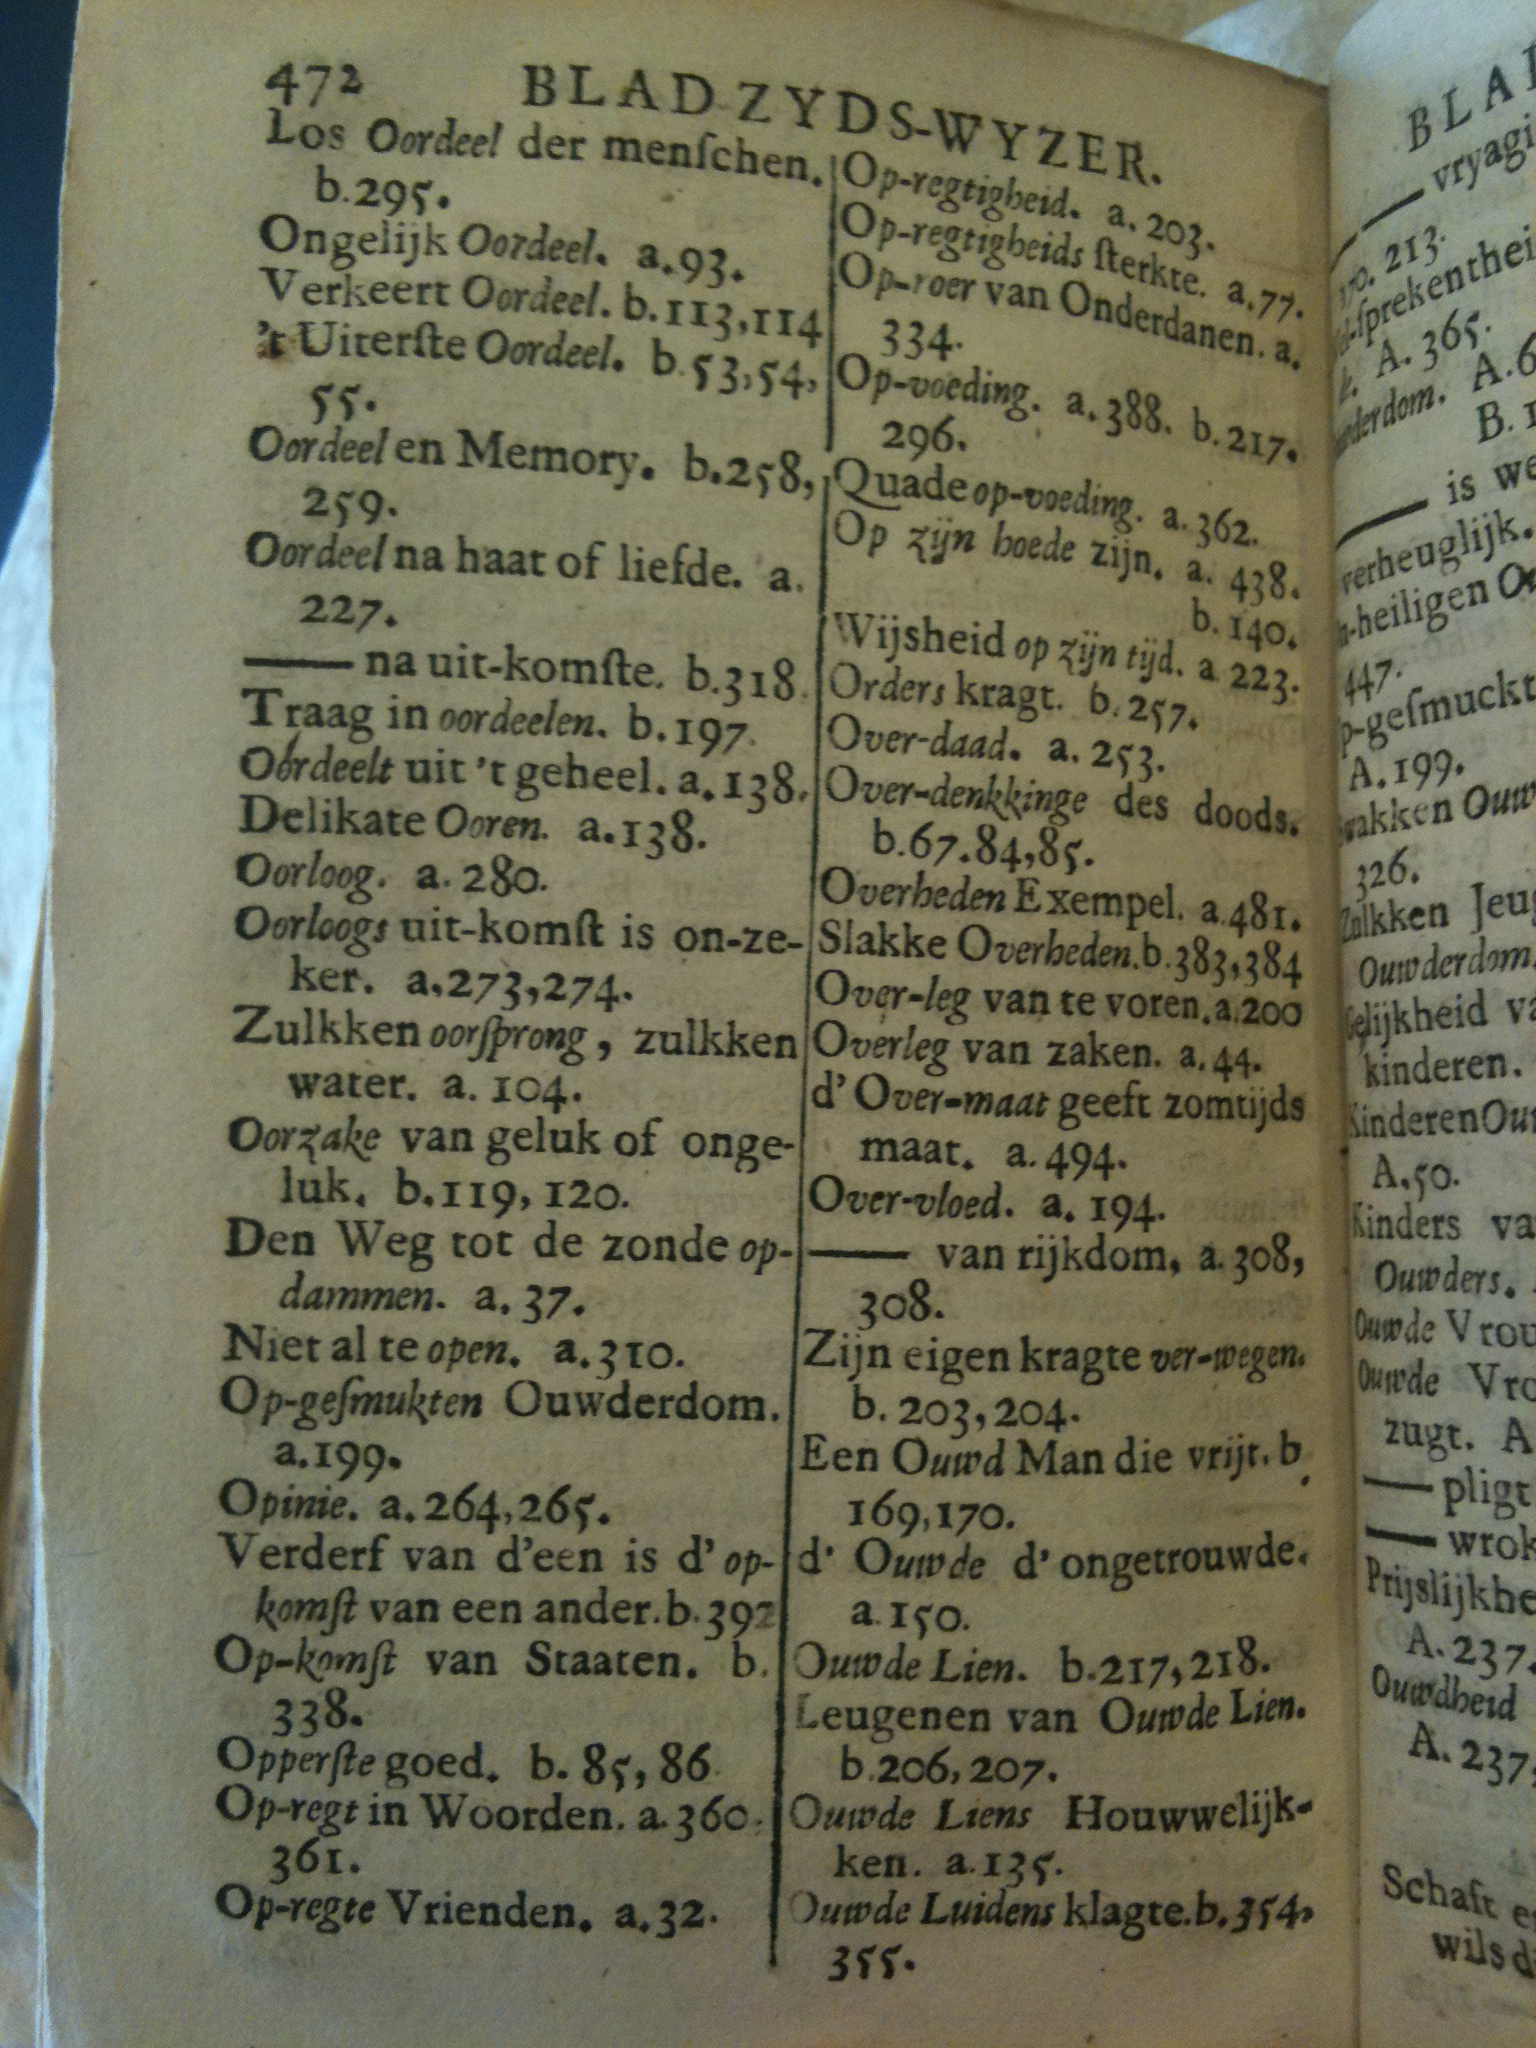 472 BLADZYDS-WYZER.
Los Oordeel der menſchen.
b.295.
Ongelijk Oordeel. a.93.
Verkeert Oordeel. b.113,114
't Uiterſte Oordeel. b.53,54,
55.
Oordeel en Memory. b.258,
259.
Oordeel na haat of liefde. a.
227.
—— na uit-komſte. b.318.
Traag in oordeelen. b.197.
Oordeelt uit 't geheel. a.138.
Delikate Ooren. a.138.
Oorloog. a.280.
Oorloogs uit-komſt is on-ze-
ker. a.273,274.
Zulkken oorſprong, zulkken
water. a. 104.
Oorzake van geluk of onge-
luk. b.119, 120.
Den Weg tot de zonde op-
dammen. a. 37.
Niet al te open. a.310.
Op-geſmukten Ouwderdom.
a.199.
Opinie. a.264,265.
Verderf van d'een is d' op-
komſt van een ander. b.392
Op-komſt van Staaten. b.
338.
Opperſte goed. b. 85, 86.
Op-regt in Woorden. a.360.
361.
Op-regte Vrienden. a.32.
Op-regtigheid. a. 203.
Op-regtigheids ſterkte. a.77.
Op-roer van Onderdanen. a.
334.
Op-voeding. a.388. b.217.
296.
Quade op-voeding. a.362.
Op zijn hoede zijn. a. 438.
b.140.
Wijsheid op zijn tijd. a 223.
Orders kragt. b.257.
Over-daad. a. 253.
Over-denkkinge des doods.
b.67.84,85.
Overheden Exempel. a.481.
Slakke Overheden.b.383,384
Over-leg van te voren.a.200
Overleg van zaken. a.44.
d' Over-maat geeft zomtijds
maat. a.494.
Over-vloed. a. 194.
—— van rijkdom, a.308,
308.
Zijn eigen kragte ver-wegen.
b. 203,204.
Een Ouwd Man die vrijt. b.
169,170.
d' Ouwde d' ongetrouwde.
a.150.
Ouwde Lien. b.217,218.
Leugenen van Ouwde Lien.
b.206,207.
Ouwde Liens Houwwelijk-
ken. a.135.
Ouwde Luidens klagte.b.354,
355.
213.
A. 365.
B.
is
verheuglijk.
447.
A.199.
326.
kinderen.
A.50.
Kinders
Ouwders.
Ouwde
Ouwde
zugt. A
—— pligt
——
A.237.
Ouwdheid
A.237.
Schaft
wils